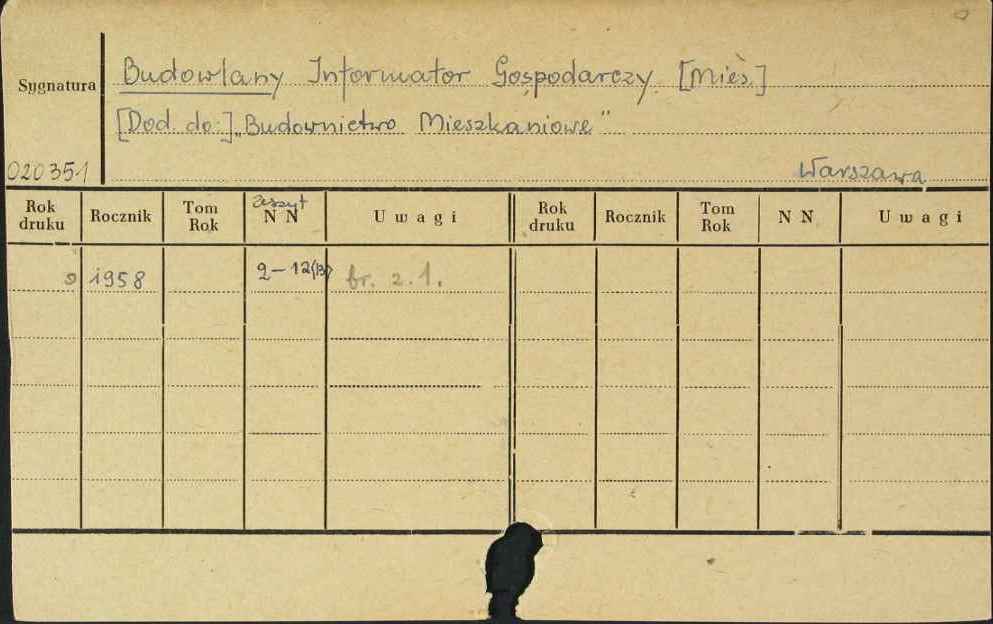 Sygnatura
Budowlany Informator Gospodarczy. [Mies.]
[Dod. do:] „Budownictwo Mieszkaniowe"
020351
Warszawa
Rok druku Rocznik Tom Rok zeszyt N N Uwagi Rok druku Rocznik Tom Rok N N Uwagi
1958 2-12(13) br. z. 1.